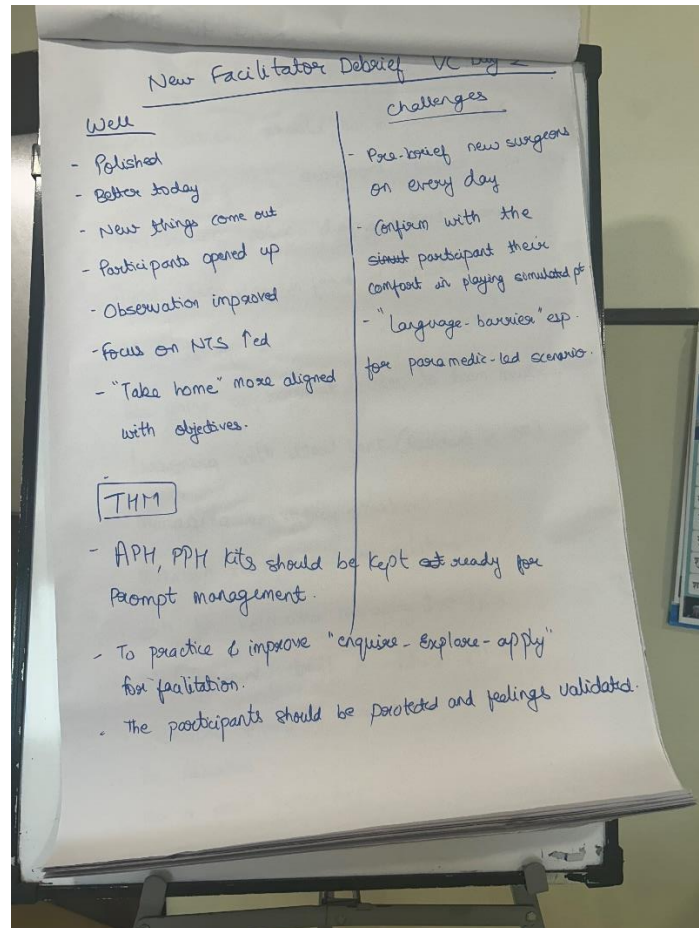 New Facilitator Debrief VC Day 2
Well
- Polished
- Better today
- New things come out
- Participants opened up
- Observation improved
- Focus on NTS ↑ed
- "Take home" more aligned
with objectives.
Challenges
- Pre-brief new surgeons
on every day
- Confirm with the
participant their
comfort in playing simulated pt
- "Language-barrier" esp.
for paramedic-led scenario.
THM
- APH, PPH kits should be kept ready for
Prompt management.
- To practice & improve "enquire-Explore-apply"
for facilitation.
- The participants should be protected and feelings validated.